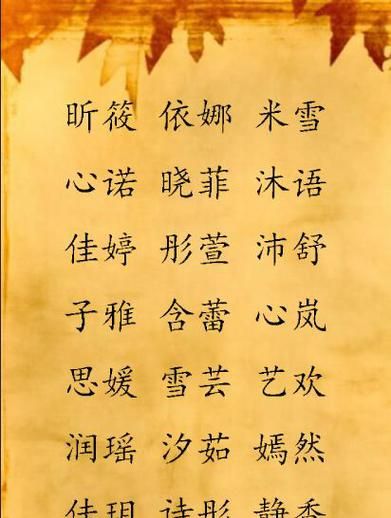 昕筱 依娜 米雪
心诺 晓菲 沐语
佳婷 彤萱 沛舒
子雅 含蕾 心岚
思媛 雪芸 艺欢
润瑶 汐茹 嫣然
佳玥 诗彤 静香